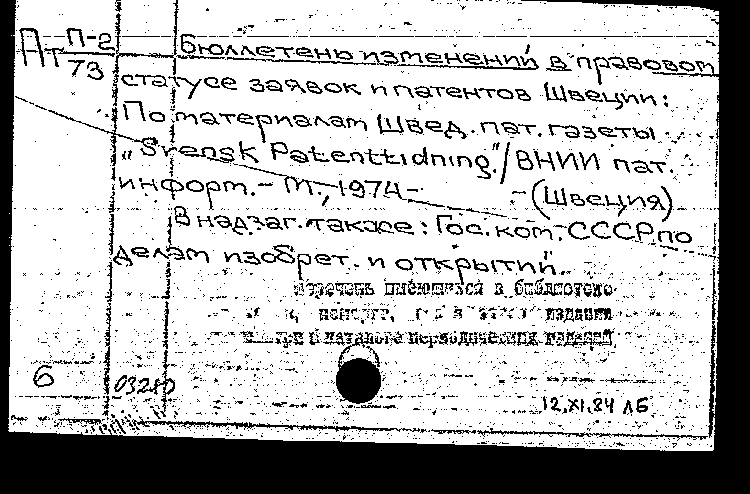 Ат П-2
73
Бюллетень изменений в правовом
статусе заявок и патентов Швеции:
По материалам Швед. пат. газеты
„Svensk Patenttidning"/ВНИИ пат.
информ.- М., 1974- -(Швеция)
В надзаг. также: Гос. ком. СССР по
делам изобрет. и открытий.
Перечень имеющихся в библиотеке
издания
в каталоге периодических изданий
6
12.XI.84 ЛБ